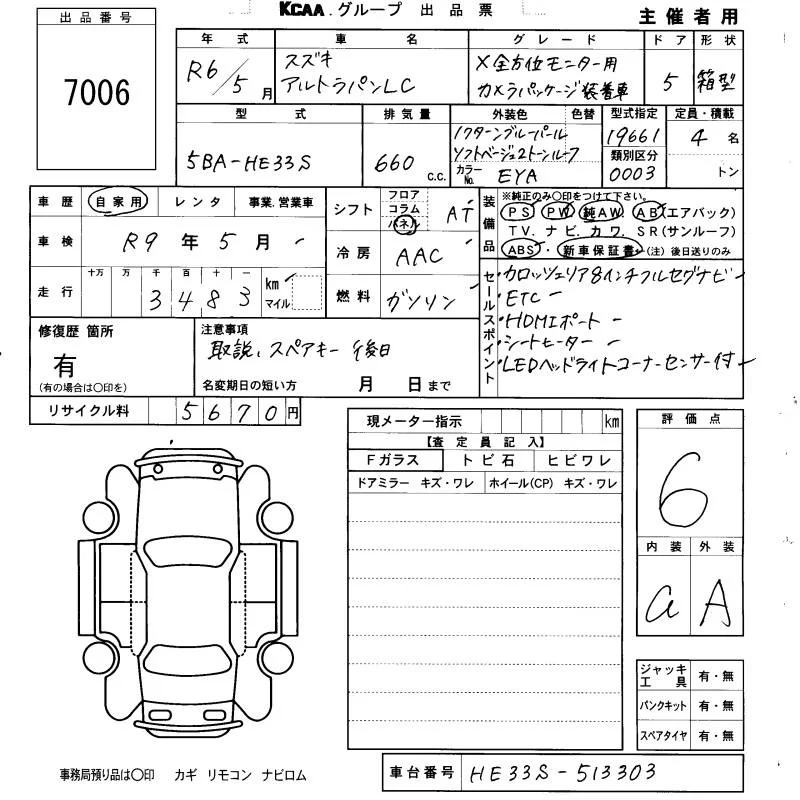 出品番号
7006
KCAA.グループ 出品票
主催者用
年式 車名 グレード ドア 形状
R6/5月
スズキ
アルトラパンLC
X全方位モニター用
カメラパッケージ装着車
5 箱型
型式 排気量 外装色 色替 型式指定 定員・積載
5BA-HE33S
660 C.C.
ソフトベージュ2トーンルーフ
カラーNo. EYA
19661
類別区分
0003
4名
トン
車歴 自家用 レンタ 事業.営業車
車検 R9年5月
走行 十万 万 千 百 十 一
3483 km マイル
シフト フロア コラム パネル AT
冷房 AAC
燃料 ガソリン
装備品 ※純正のみ○印をつけて下さい。
PS PW 純AW. AB(エアバック)
TV. ナビ. カワ. SR(サンルーフ)
ABS・新車保証書(注)後日送りのみ
セールスポイント
・カロッツェリア8インチフルセグナビ
・ETC
・HDMIポート
・シートヒーター
・LEDヘッドライトコーナーセンサー付
修復歴 箇所
有
(有の場合は○印を)
注意事項
取説、スペアキー後日
名変期日の短い方 月 日まで
リサイクル料 5670円
現メーター指示 km
【査定員記入】
Fガラス トビ石 ヒビワレ
ドアミラー キズ・ワレ ホイール(CP) キズ・ワレ
評価点
6
内装 外装
a A
ジャッキ工具 有・無
パンクキット 有・無
スペアタイヤ 有・無
事務局預り品は○印 カギ リモコン ナビロム
車台番号 HE33S-513303